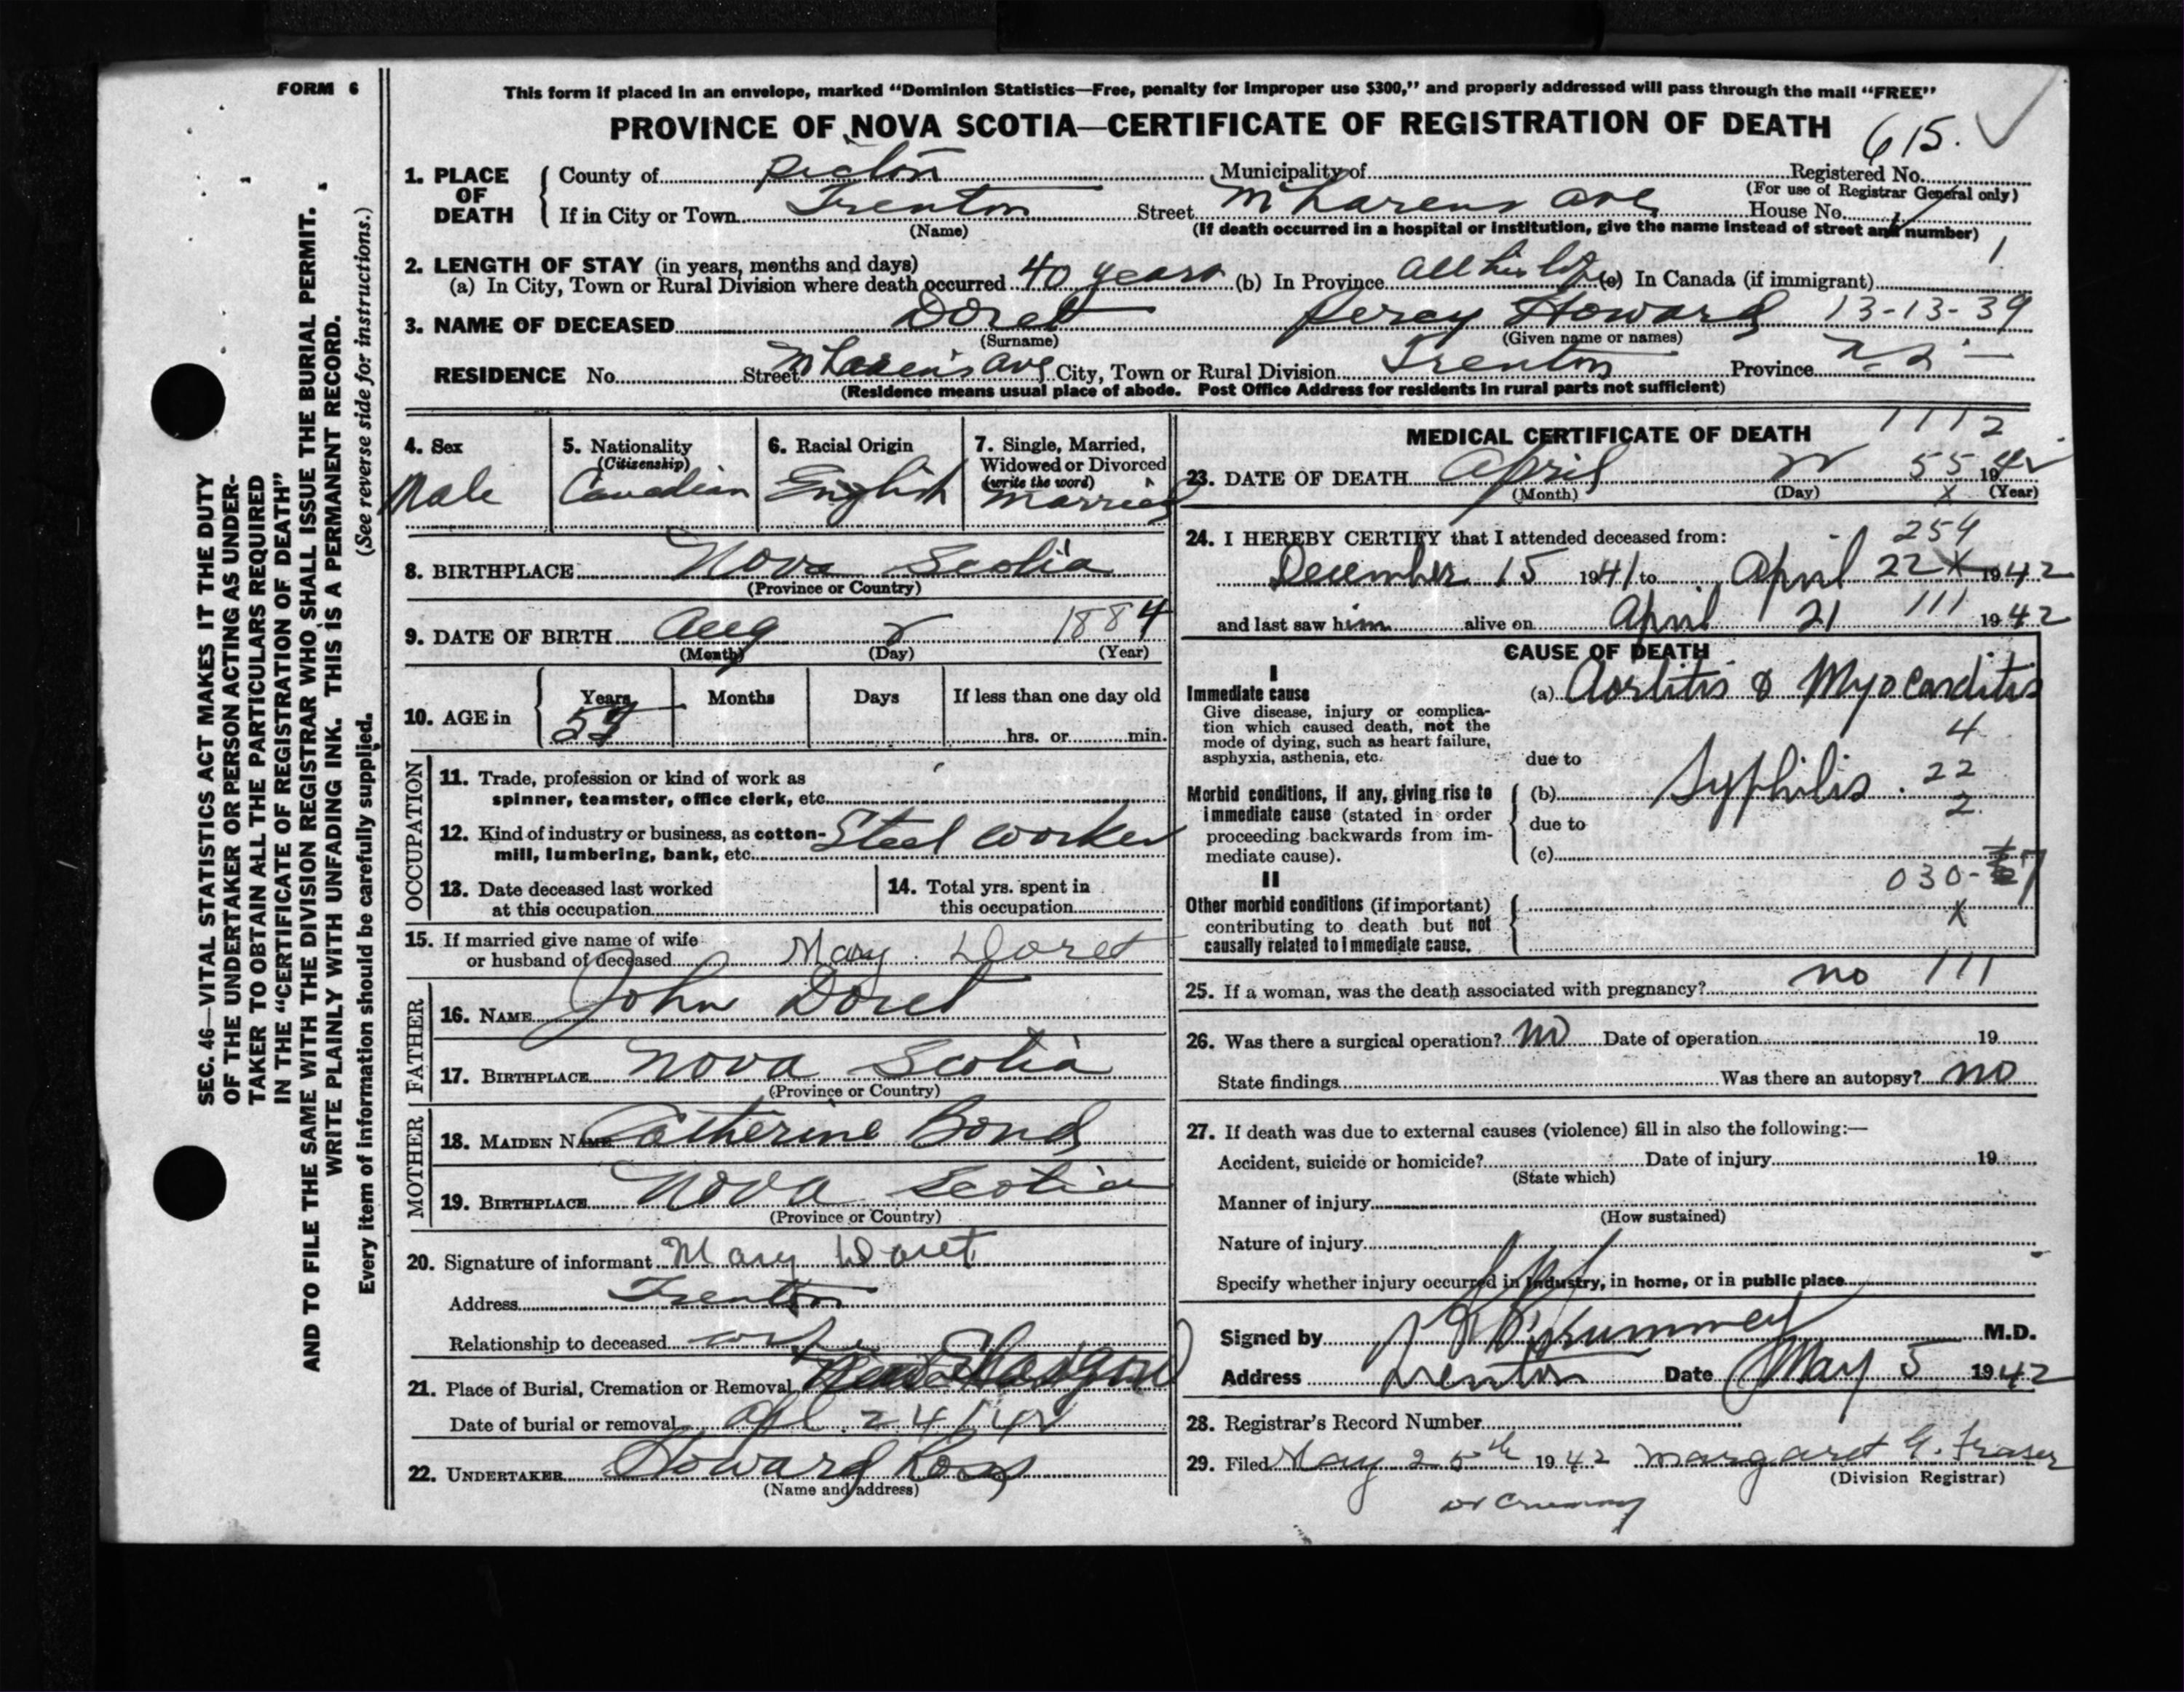 FORM 6
This form if placed in an envelope, marked "Dominion Statistics—Free, penalty for improper use $300," and properly addressed will pass through the mail "FREE"
PROVINCE OF NOVA SCOTIA—CERTIFICATE OF REGISTRATION OF DEATH
615.
1. PLACE OF DEATH
County of Pictou Municipality of Registered No.
(For use of Registrar General only)
If in City or Town Trenton Street McLarens Ave House No.
(Name)
(If death occurred in a hospital or institution, give the name instead of street and number)
1
2. LENGTH OF STAY (in years, months and days)
(a) In City, Town or Rural Division where death occurred 40 years (b) In Province All his life (c) In Canada (if immigrant)
3. NAME OF DECEASED Doret Percy Howard 13-13-39
(Surname) (Given name or names)
RESIDENCE No. Street McLaren's Ave City, Town or Rural Division Trenton Province N.S.
(Residence means usual place of abode. Post Office Address for residents in rural parts not sufficient)
4. Sex
Male
5. Nationality
(Citizenship)
Canadian
6. Racial Origin
English
7. Single, Married,
Widowed or Divorced
(write the word)
Married
8. BIRTHPLACE Nova Scotia
(Province or Country)
9. DATE OF BIRTH Aug 2 1884
(Month) (Day) (Year)
10. AGE in
Years Months Days If less than one day old
57
hrs. or min.
OCCUPATION
11. Trade, profession or kind of work as
spinner, teamster, office clerk, etc.
12. Kind of industry or business, as cotton-
mill, lumbering, bank, etc. Steel worker
13. Date deceased last worked
at this occupation
14. Total yrs. spent in
this occupation
15. If married give name of wife
or husband of deceased Mary Doret
FATHER
16. NAME John Doret
17. BIRTHPLACE Nova Scotia
(Province or Country)
MOTHER
18. MAIDEN NAME Catherine Bond
19. BIRTHPLACE Nova Scotia
(Province or Country)
20. Signature of informant Mary Doret
Address Trenton
Relationship to deceased wife
21. Place of Burial, Cremation or Removal New Glasgow
Date of burial or removal Apl 24/42
22. UNDERTAKER Howard Ross
(Name and address)
MEDICAL CERTIFICATE OF DEATH
1112
23. DATE OF DEATH April 22 55 1942
(Month) (Day) x (Year)
24. I HEREBY CERTIFY that I attended deceased from:
254
December 15 1941 to April 22 x 1942
and last saw him alive on April 21 111 1942
CAUSE OF DEATH
I
Immediate cause
Give disease, injury or complica-
tion which caused death, not the
mode of dying, such as heart failure,
asphyxia, asthenia, etc.
(a) Aortitis & Myocarditis
4
due to
Morbid conditions, if any, giving rise to
immediate cause (stated in order
proceeding backwards from im-
mediate cause).
(b) Syphilis. 22
2
due to
(c)
030-
II
Other morbid conditions (if important)
contributing to death but not
causally related to immediate cause.
X
25. If a woman, was the death associated with pregnancy? no 111
26. Was there a surgical operation? no Date of operation 19
State findings Was there an autopsy? no
27. If death was due to external causes (violence) fill in also the following:—
Accident, suicide or homicide? Date of injury 19
(State which)
Manner of injury
(How sustained)
Nature of injury
Specify whether injury occurred in industry, in home, or in public place
Signed by M.D.
Address Trenton Date May 5 1942
28. Registrar's Record Number
29. Filed May 25th 1942 Margaret G. Fraser
(Division Registrar)
Dr Crummey
SEC. 46—VITAL STATISTICS ACT MAKES IT THE DUTY
OF THE UNDERTAKER OR PERSON ACTING AS UNDER-
TAKER TO OBTAIN ALL THE PARTICULARS REQUIRED
IN THE "CERTIFICATE OF REGISTRATION OF DEATH"
AND TO FILE THE SAME WITH THE DIVISION REGISTRAR WHO SHALL ISSUE THE BURIAL PERMIT.
WRITE PLAINLY WITH UNFADING INK. THIS IS A PERMANENT RECORD.
Every item of information should be carefully supplied. (See reverse side for instructions.)